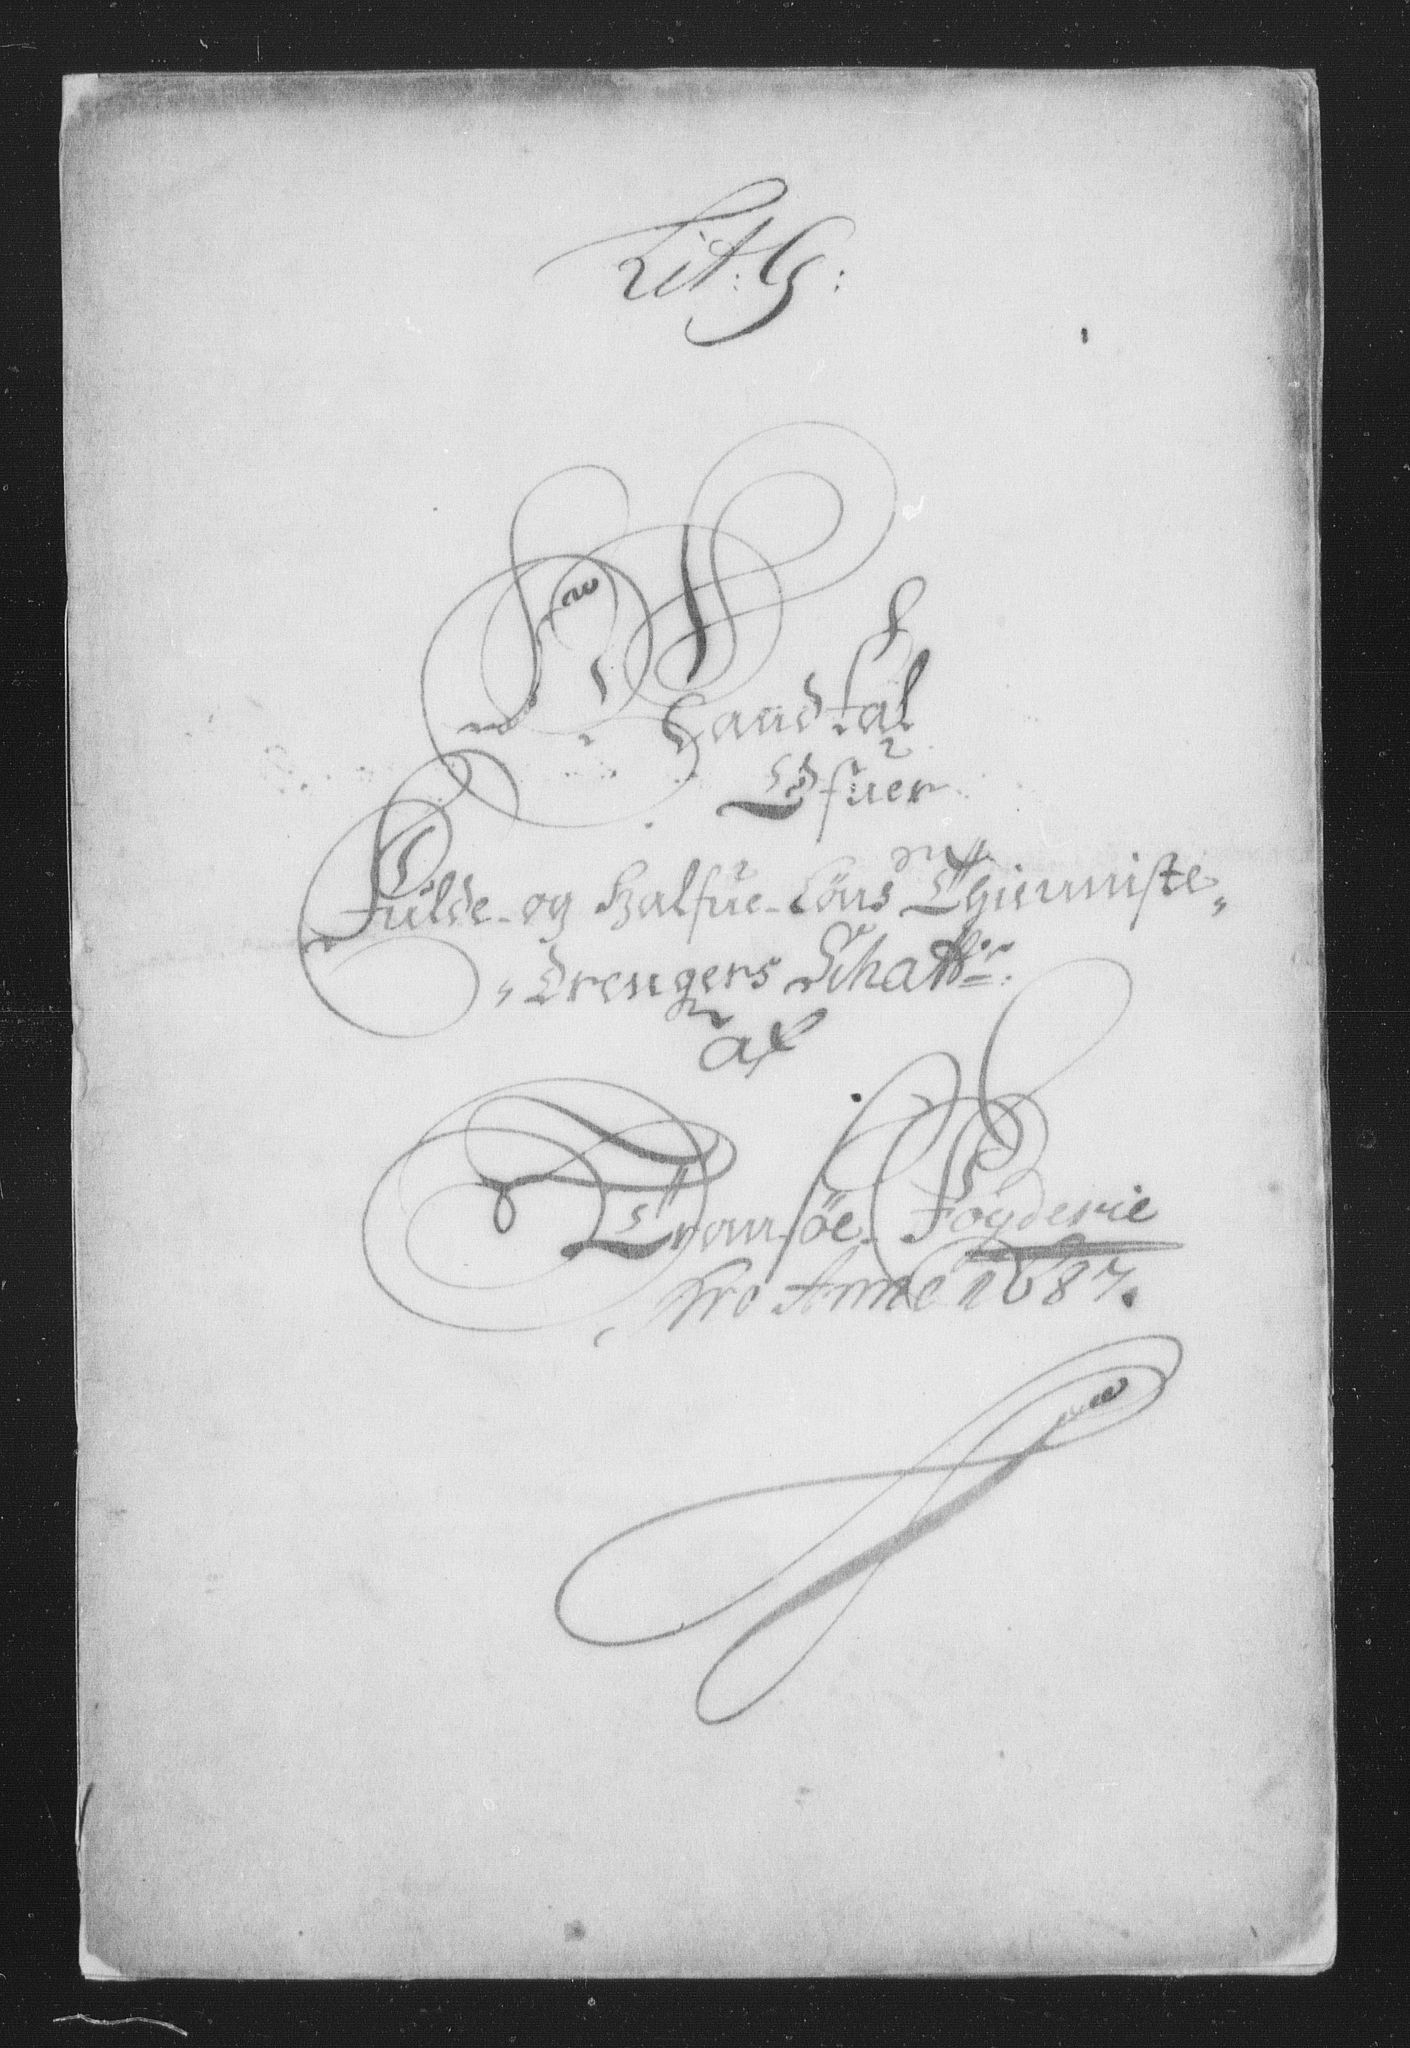 Lit: G:
Mandtal
Ofuer
Fulde- og Halfue- Löns Thienniste,,
,,Drengers Schatt
af
Tromsöe Fögderie
Pro Anno 1687.